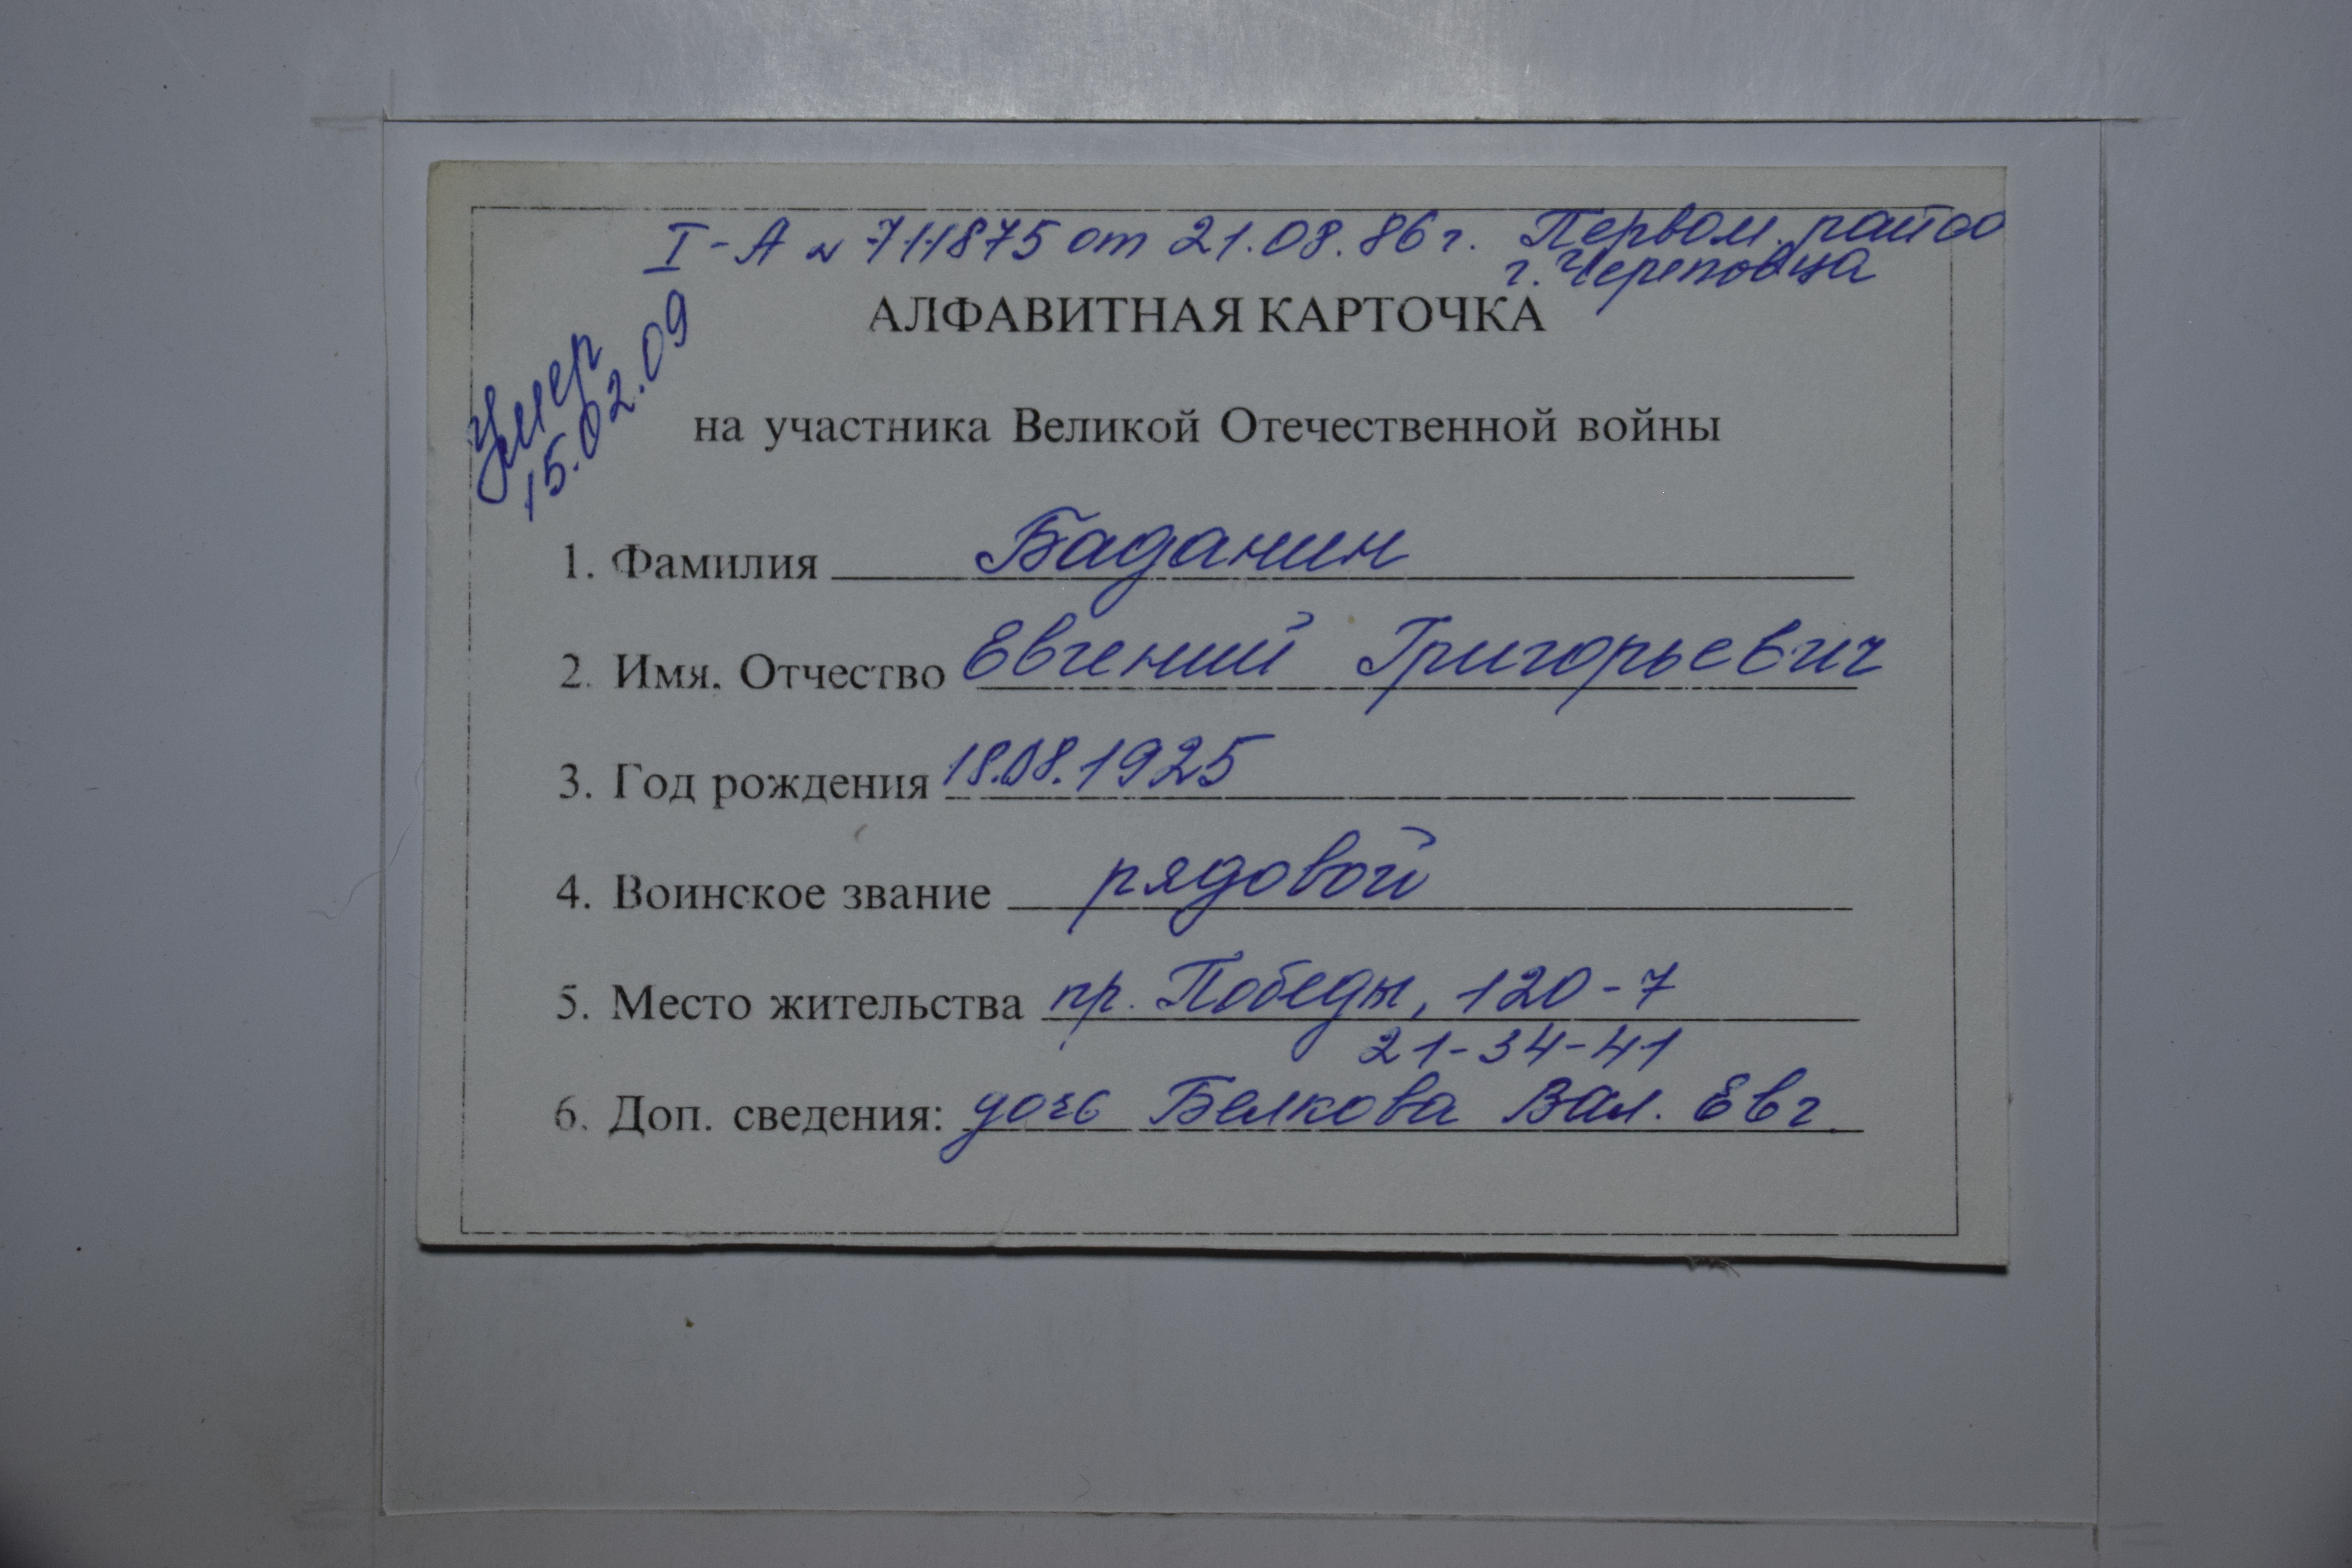 I-А № 711875 от 21.08.86 г. Первом. райсо
г. Череповца
АЛФАВИТНАЯ КАРТОЧКА
Умер
15.02.09
на участника Великой Отечественной войны
1. Фамилия Баданин
2. Имя, Отчество Евгений Григорьевич
3. Год рождения 18.08.1925
4. Воинское звание рядовой
5. Место жительства пр. Победы, 120-7
21-34-41
6. Доп. сведения: дочь Белкова Вал. Евг.